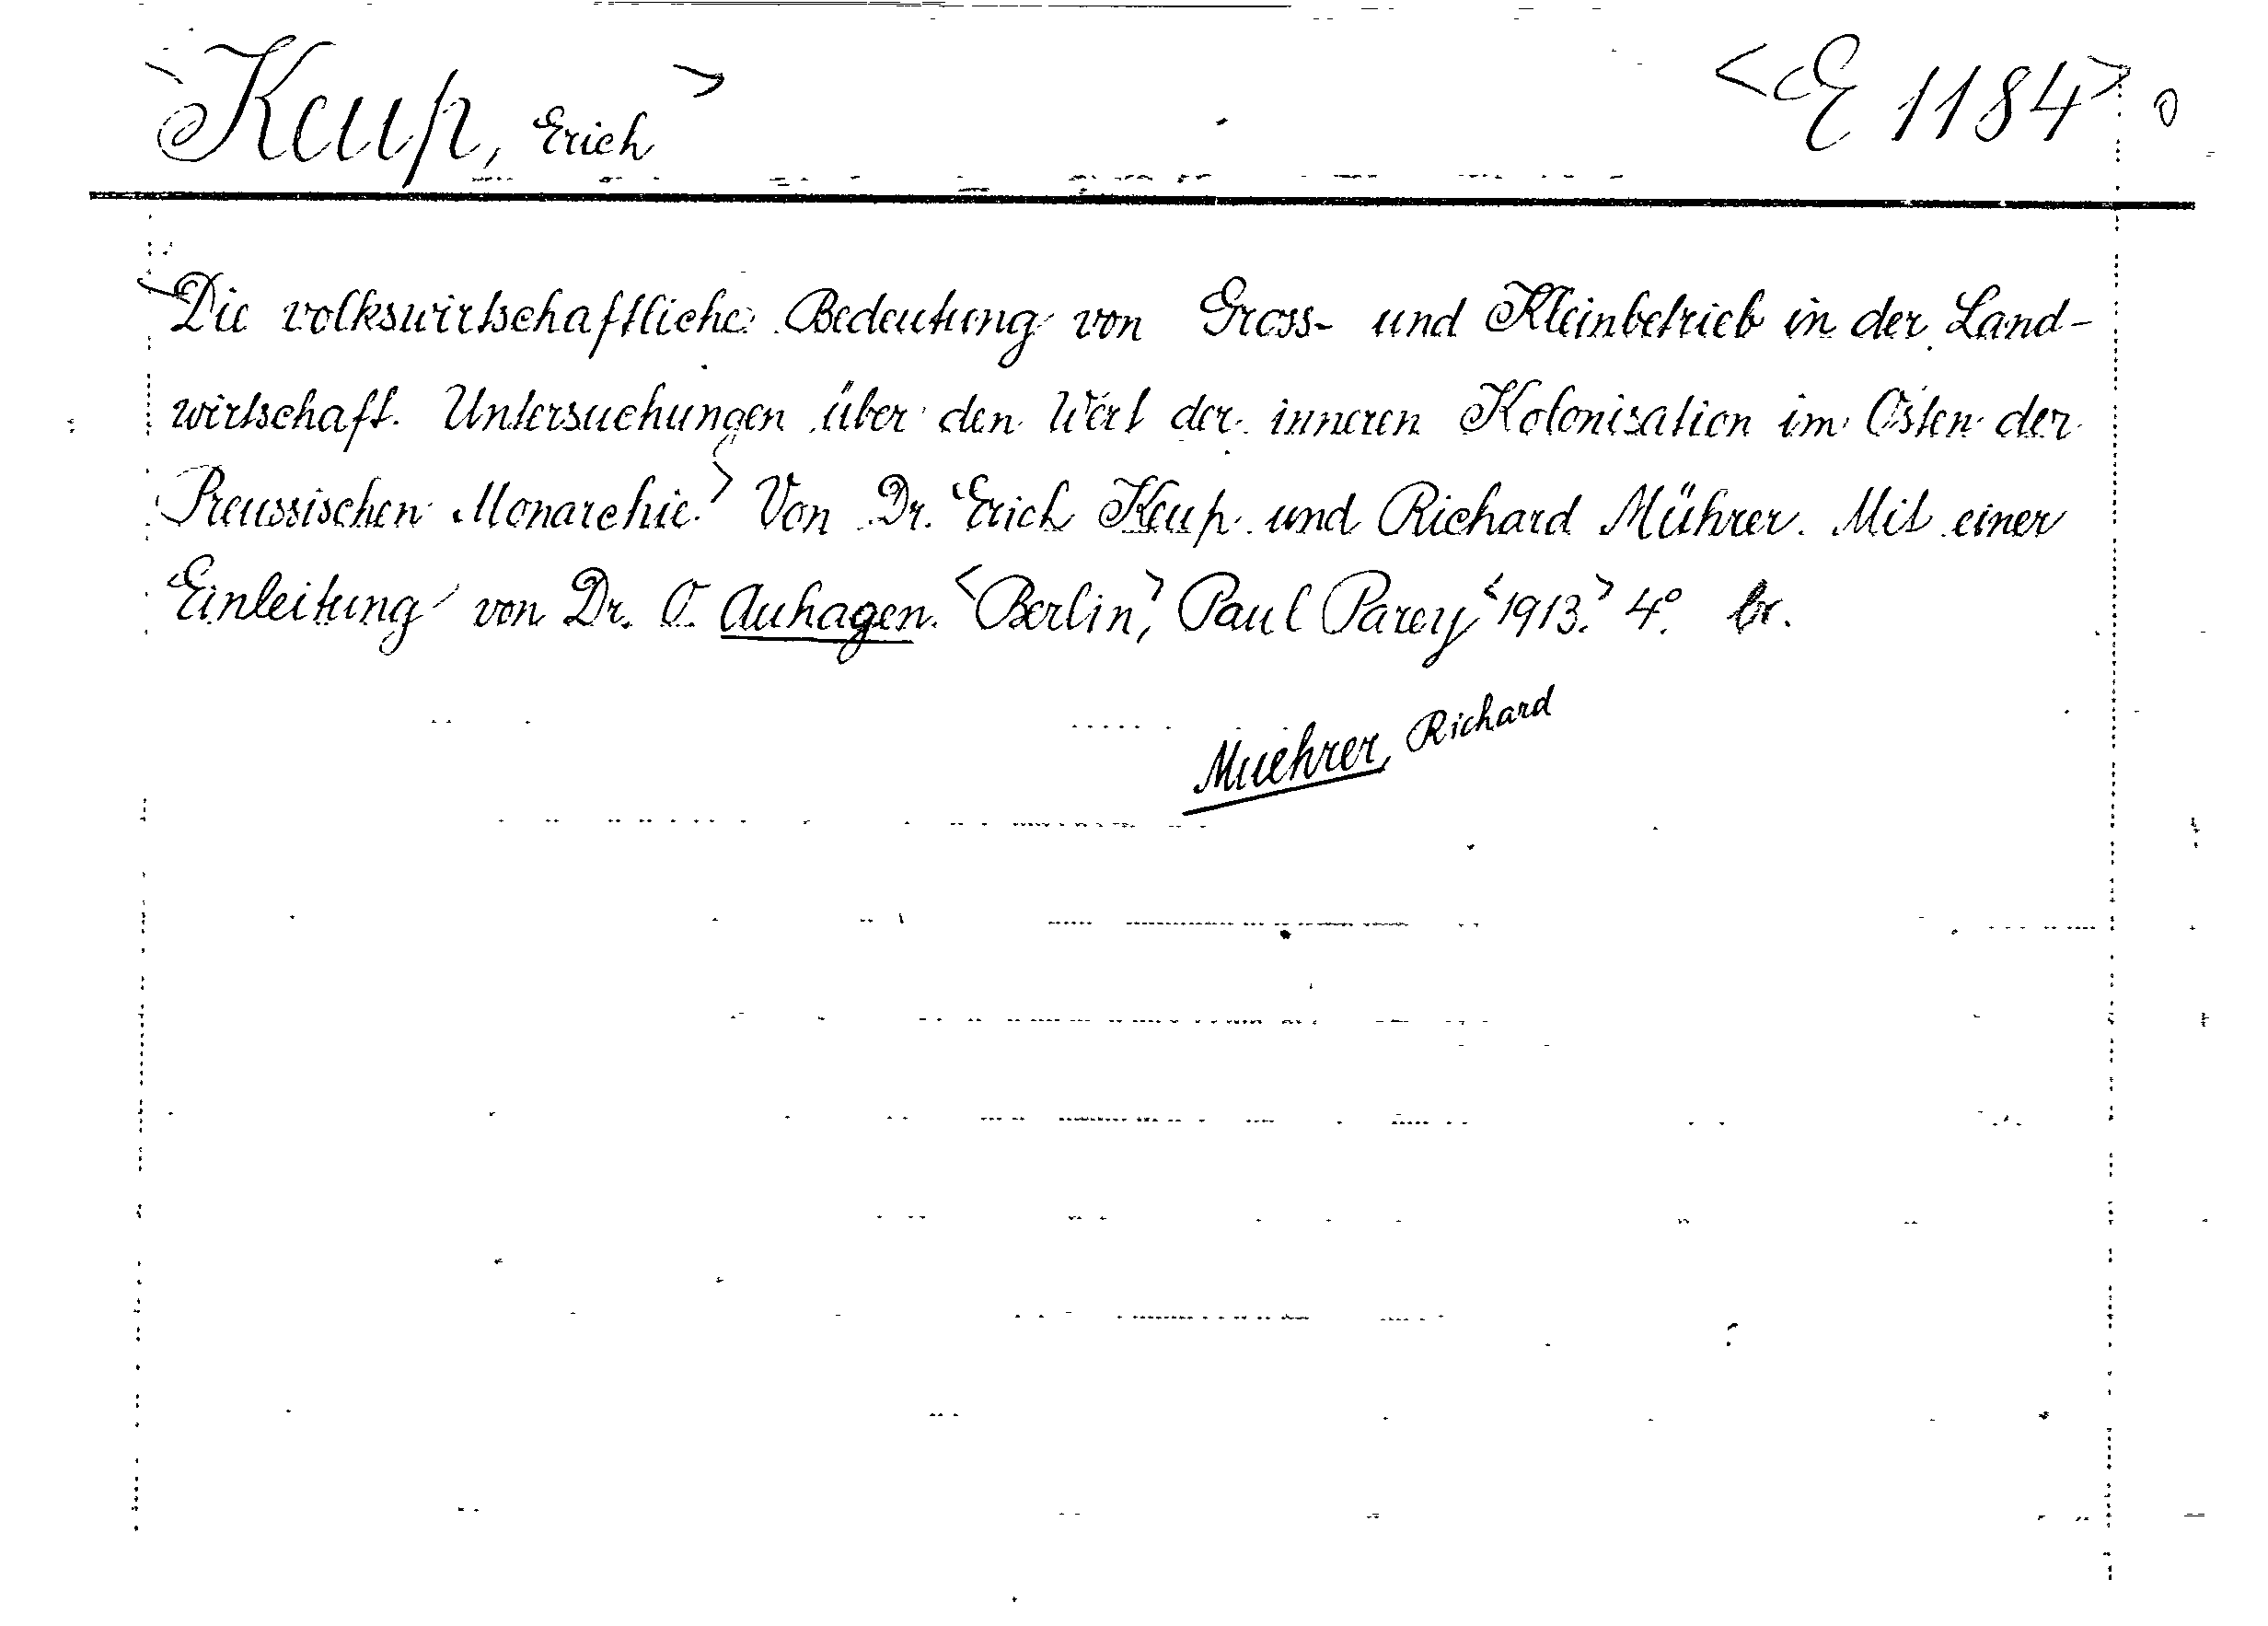 <Keup, Erich> <E 1184> 0
<Die volkswirtschaftliche Bedeutung von Gross- und Kleinbetrieb in der Land-
wirtschaft. Untersuchungen über den Wert der inneren Kolonisation im Osten der
Preussischen Monarchie.> Von Dr. Erich Keup und Richard Mührer. Mit einer
Einleitung von Dr. O. Auhagen. <Berlin,> Paul Parey <1913.> 4°. br.
Muehrer, Richard